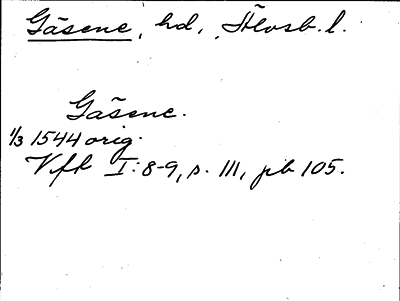 Gäsene, hd, Älvsb. l.
Gäsene.
1/3 1544 orig.
Vfk I: 8-9, s. 111, pb 105.